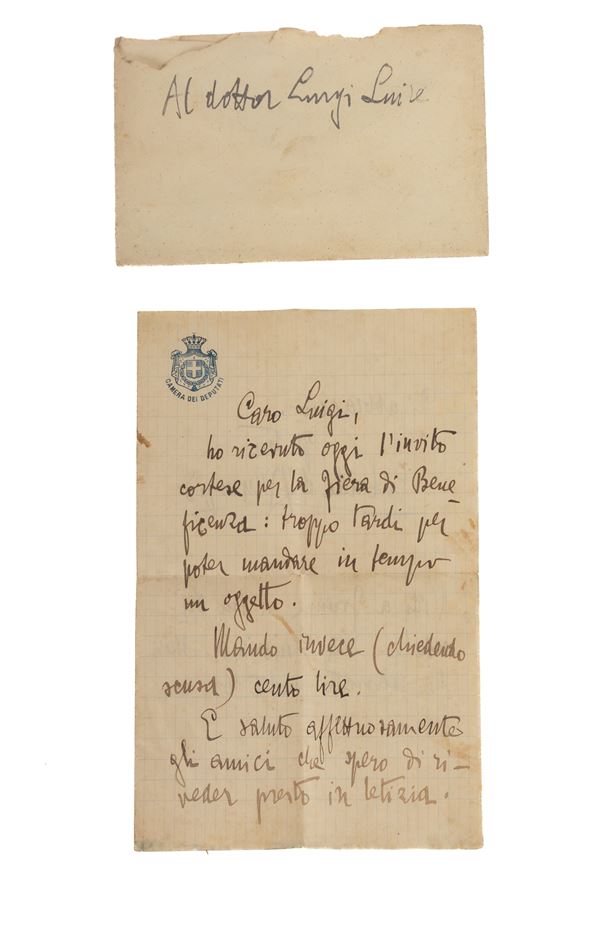 Al dottor Luigi Luise
CAMERA DEI DEPUTATI
Caro Luigi,
ho ricevuto oggi l'invito
cortese per la Fiera di Bene
ficenza: troppo tardi per
poter mandare in tempo
un oggetto.
Mando invece (chiedendo
scusa) cento lire.
E saluto affettuosamente
gli amici che spero di ri-
veder presto in letizia.